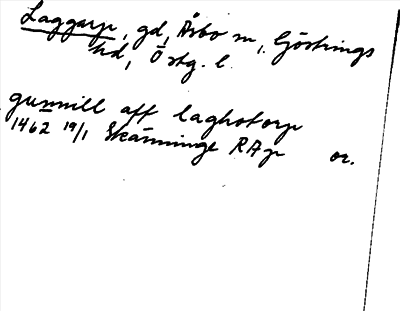 Laggarp, gd, Årbo sn, Göstrings
hd, Östg. l.
gunnill aff laghotorp
1462 19/1 Skänninge RAp or.